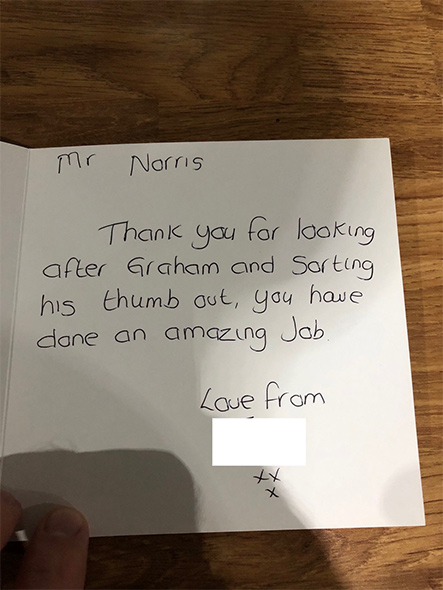 Mr Norris
Thank you for looking
after Graham and Sorting
his thumb out, you have
done an amazing Job.
Love from
xx
x